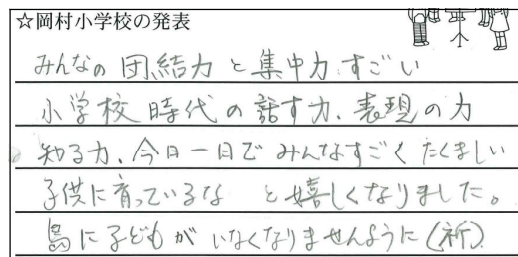 ☆岡村小学校の発表
みんなの団結力と集中力すごい
小学校時代の話す力、表現の力
知る力、今日一日でみんなすごくたくましい
子供に育っているな と嬉しくなりました。
島に子どもがいなくなりませんように(祈)